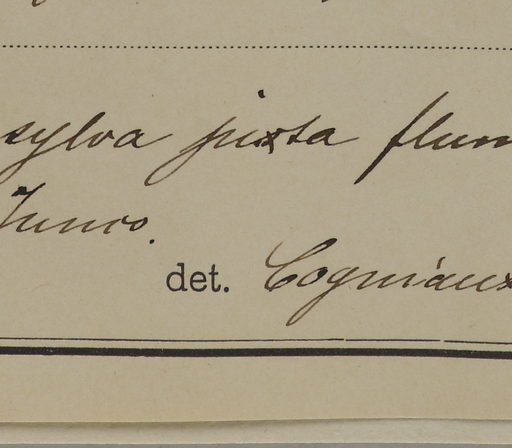 sylva juxta flum
Junco.
det. Cogniaux